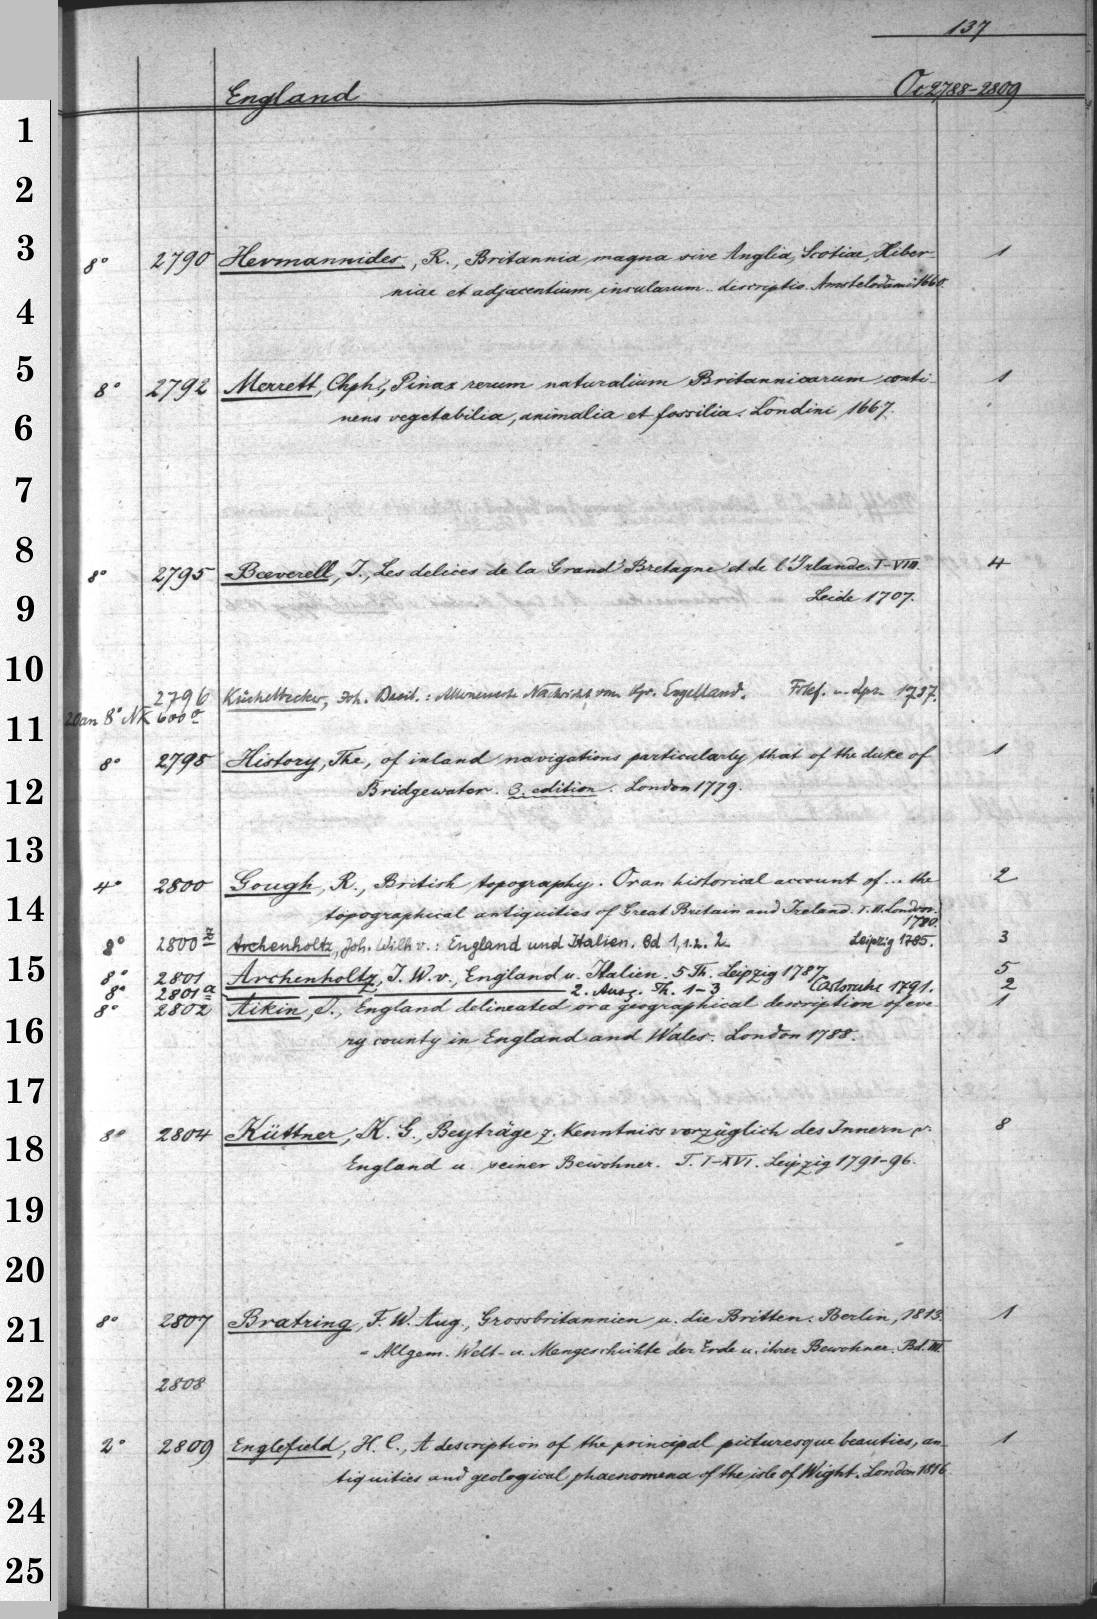 137
England Oc 2788-2809
8° 2790 Hermannides, R., Britannia magna sive Anglia, Scotiae, Hiber- 1
niae et adjacentium insularum .. descriptio. Amstelodami 1660.
8° 2792 Merrett, Chph., Pinax rerum naturalium Britannicarum conti- 1
nens vegetabilia, animalia et fossilia. Londini 1667.
8° 2795 Beeverell, J., Les delices de la Grand' Bretagne et de l'Irlande. I-VIII. 4
Leide 1707.
2796 Küchelbecker, Joh. Basil.: Allerneueste Nachricht vom Kgr. Engelland. Frkf. u. Lpz. 1737.
20 an 8° NK 600 a
8° 2798 History, The, of inland navigations particularly that of the duke of 1
Bridgewater. 3. edition. London 1779.
4° 2800 Gough, R., British topography. Or an historical account of ... the 2
topographical antiquities of Great Britain and Ireland. I. II. London.
1780.
8° 2800 z Archenholtz, Joh. Wilh. v.: England und Italien. Bd 1,1.2. 2 Leipzig 1785. 3
8° 2801 Archenholtz, J. W. v., England u. Italien. 5 Th. Leipzig 1787. 5
8° 2801 a 2. Ausg. Th. 1-3 Carlsruhe 1791. 2
8° 2802 Aikin, J., England delineated or a geographical description of eve 1
ry county in England and Wales. London 1788.
8° 2804 Küttner, K. G., Beyträge z. Kenntniss vorzüglich des Innern v. 8
England u. seiner Bewohner. T. I-XVI. Leipzig 1791-96.
8° 2807 Bratring, F. W. Aug., Grossbritannien u. die Britten. Berlin, 1813. 1
= Allgem. Welt- u. Mengeschichte der Erde u. ihrer Bewohner. Bd. III
2808
2° 2809 Englefield, H. C., A description of the principal picturesque beauties, an- 1
tiquities and geological phaenomena of the isle of Wight. London 1816.
1
2
3
4
5
6
7
8
9
10
11
12
13
14
15
16
17
18
19
20
21
22
23
24
25